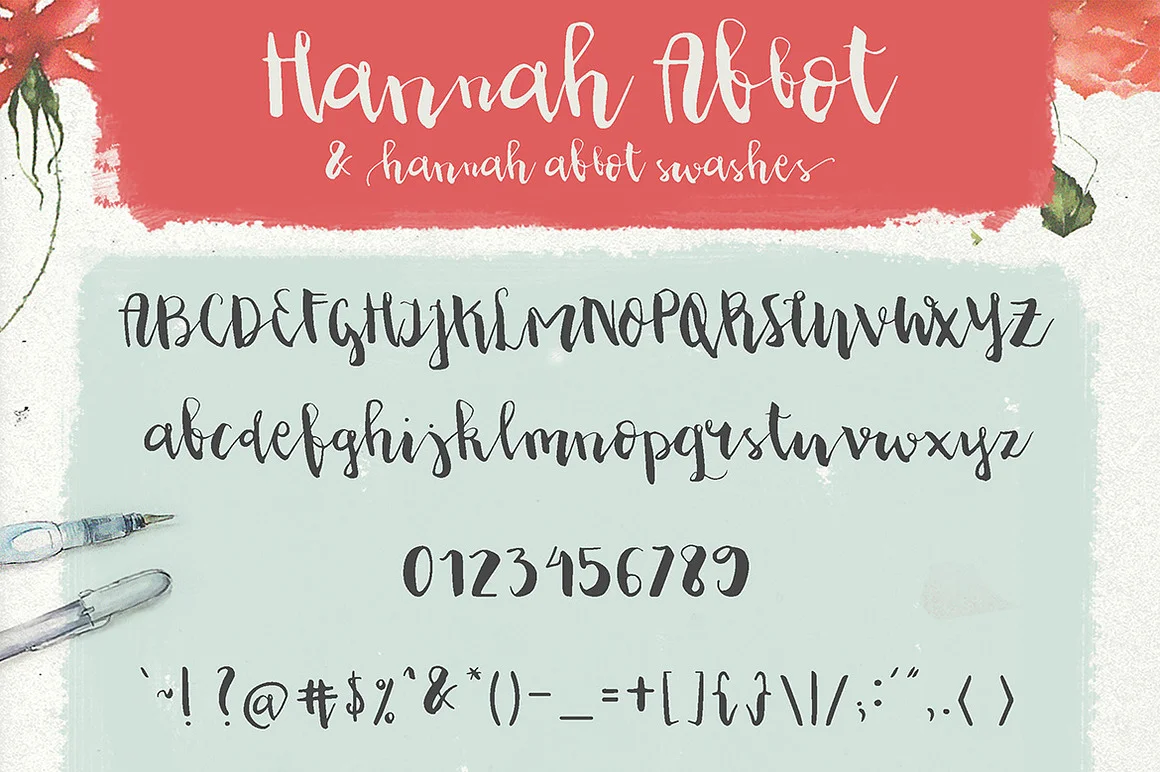 Hannah Abbot
& hannah abbot swashes
ABCDEFGHIJKLMNOPQRSTUVWXYZ
abcdefghijklmnopqrstuvwxyz
0123456789
`~!?@#$%^&*()-_=+[]{}\|/;:'",.<>